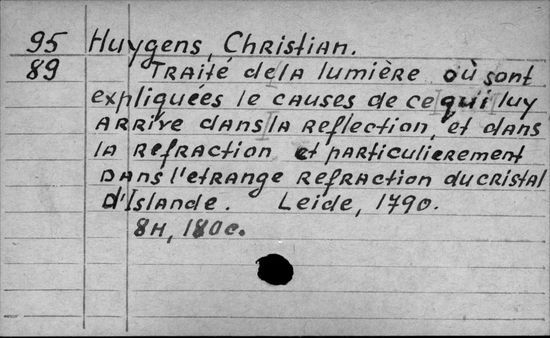 95 Huygens, Christian.
89 Traité de la lumière où sont
expliquées le causes de ce qui luy
arrive dans la reflection, et dans
la refraction et particulierement
dans l'etrange refraction du cristal
d'Islande. Leide, 1790.
8H, 180c.